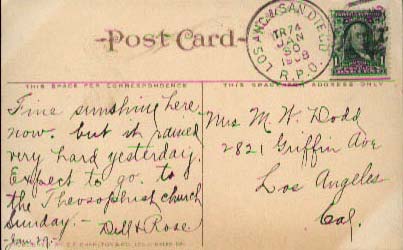 Post Card
LOS ANG. & SAN DIEGO
TR 74
JAN
30
1908
R.P.O.
THIS SPACE FOR CORRESPONDENCE
THIS SPACE FOR ADDRESS ONLY
Fine sunshine here
now. but it rained
very hard yesterday.
Expect to go to
the Theosophist church
Sunday. - Dell & Rose
Jan. 29.
Mrs M. W. Dodd
2821 Griffin Ave
Los Angeles
Cal.